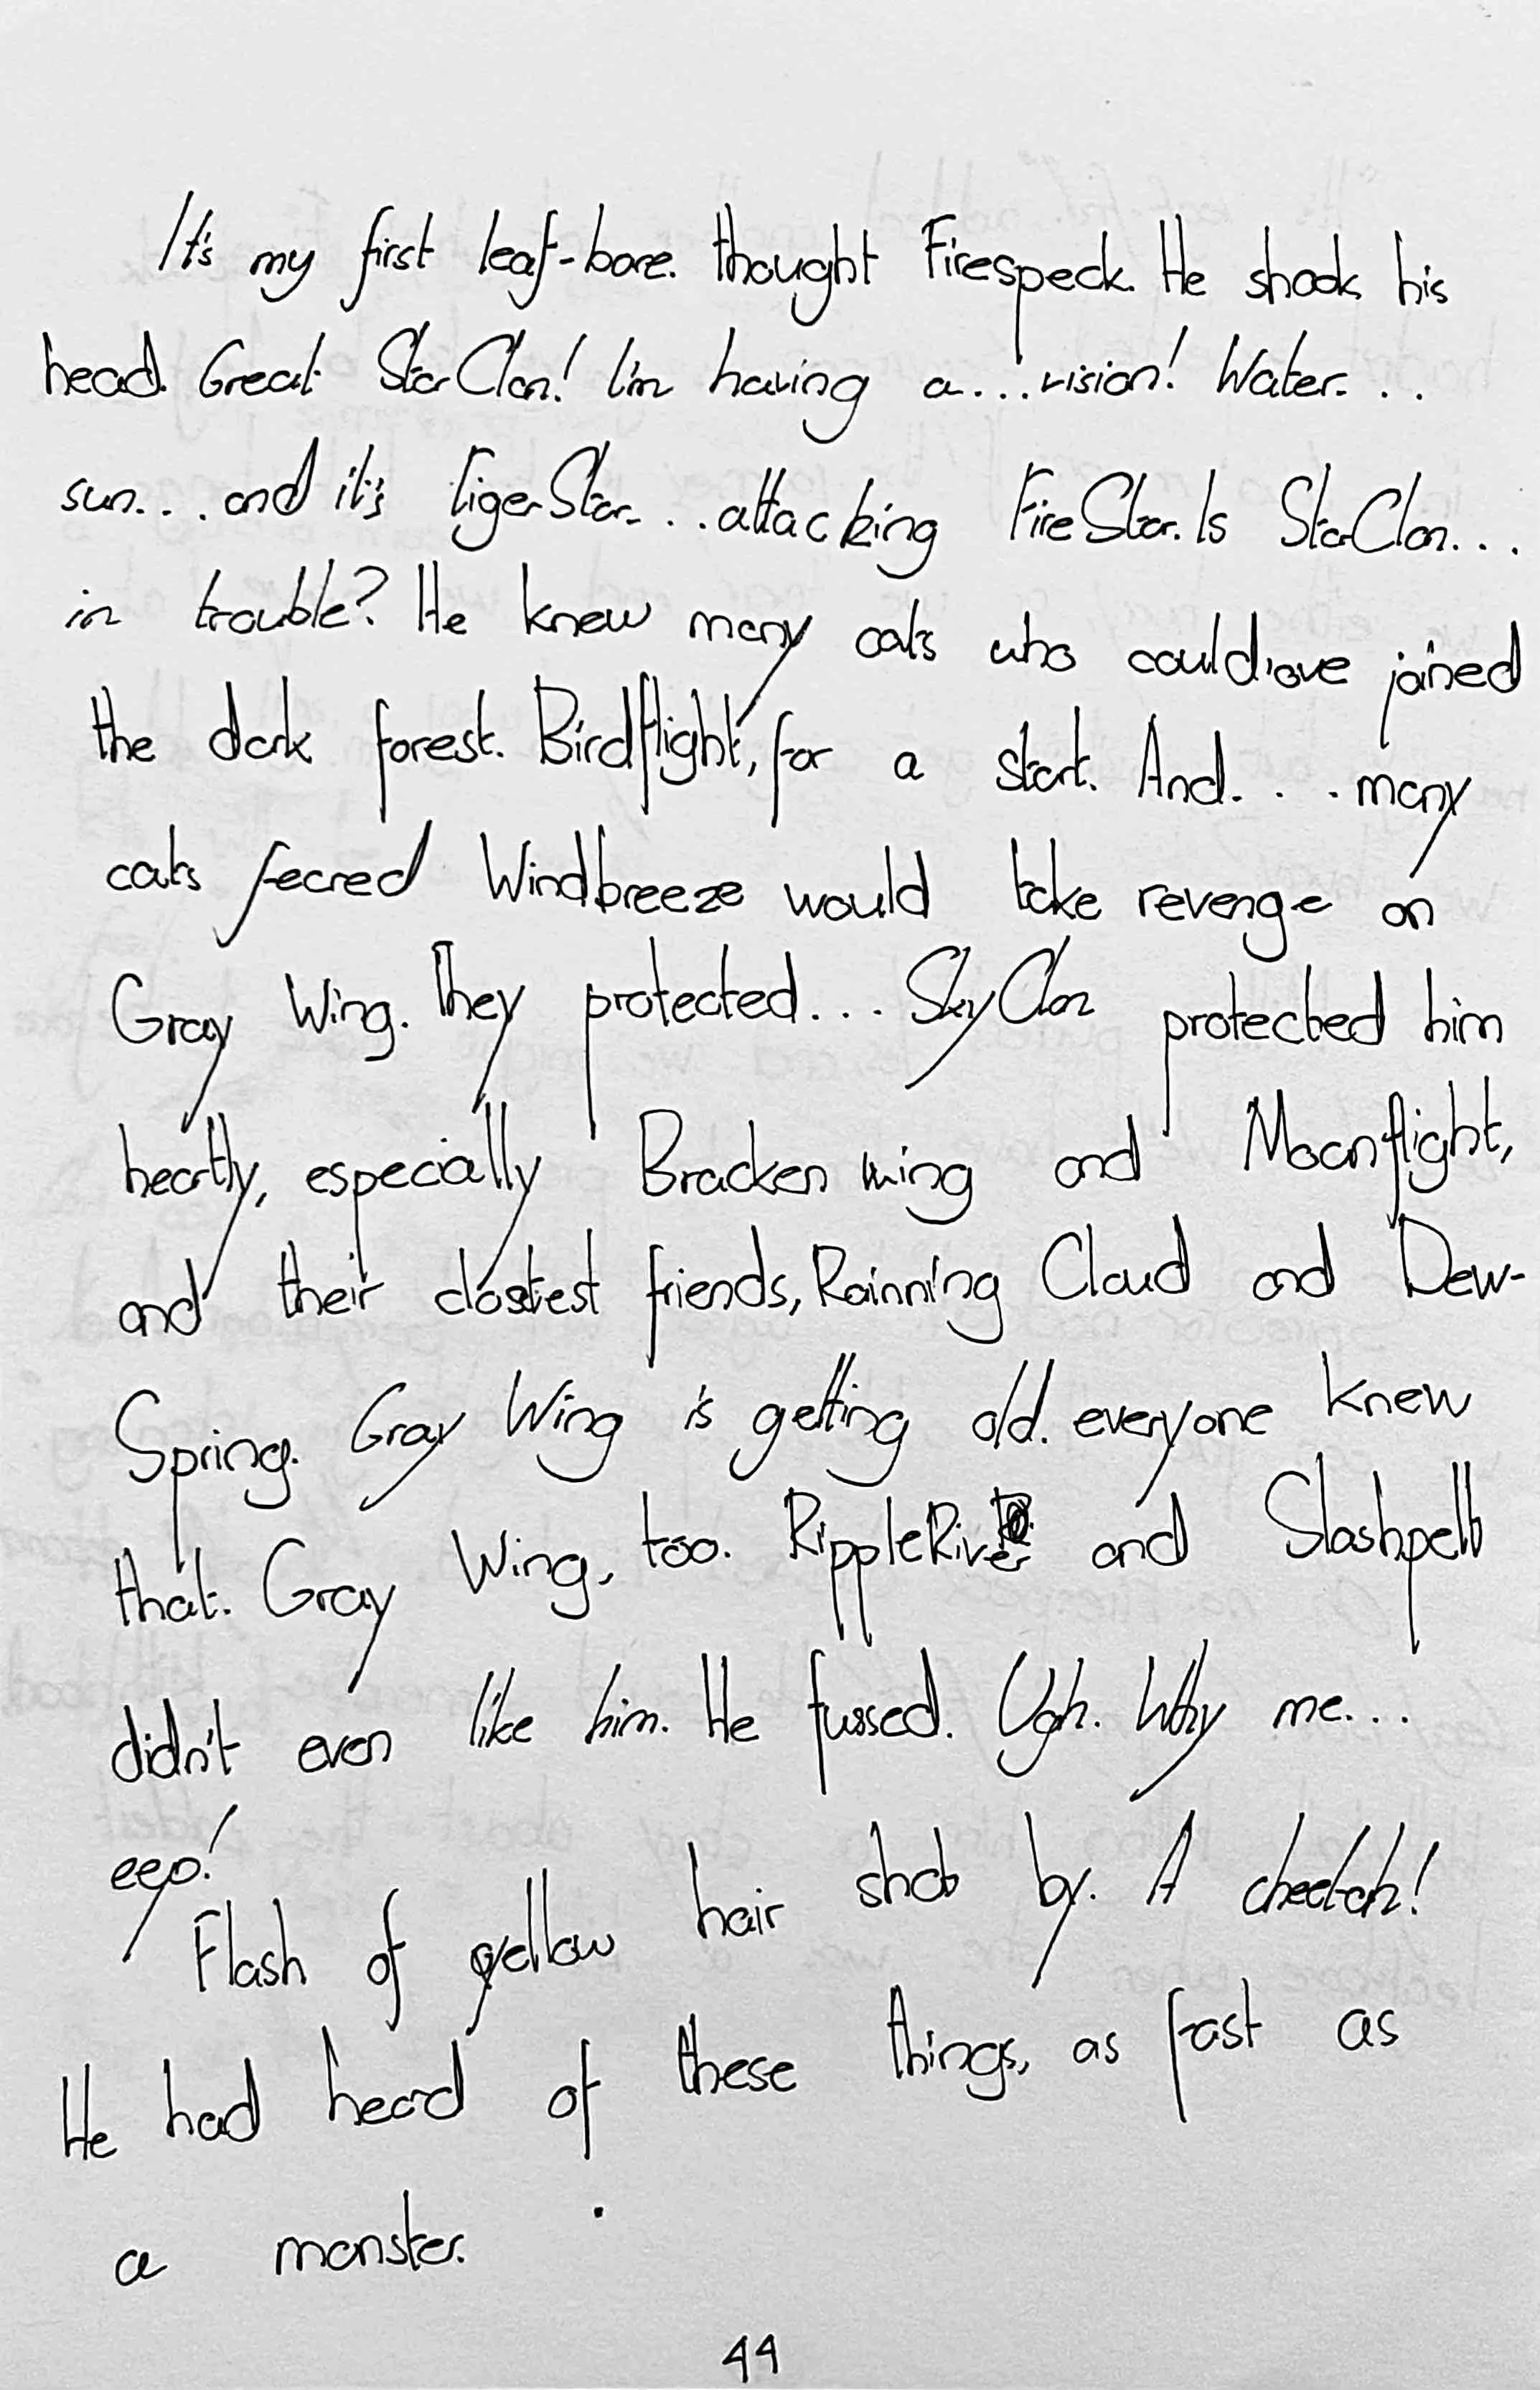 It's my first leaf-bare. thought Firespeck. He shook his
head. Great StarClan! I'm having a...vision! Water...
sun...and it's TigerStar...attacking FireStar. Is StarClan...
in trouble? He knew many cats who could'ave joined
the dark forest. Birdflight, for a start. And...many
cats feared Windbreeze would take revenge on
Gray Wing. They protected...SkyClan protected him
heartly, especially Bracken wing and Moonflight,
and their clostest friends, Rainning Cloud and Dew-
Spring. Gray Wing is getting old. everyone knew
that. Gray Wing, too. RippleRiver and Slashpelt
didn't even like him. He fussed. Ugh. Why me...
eep!
Flash of yellow hair shot by. A cheetah!
He had heard of these things, as fast as
a monster.
44